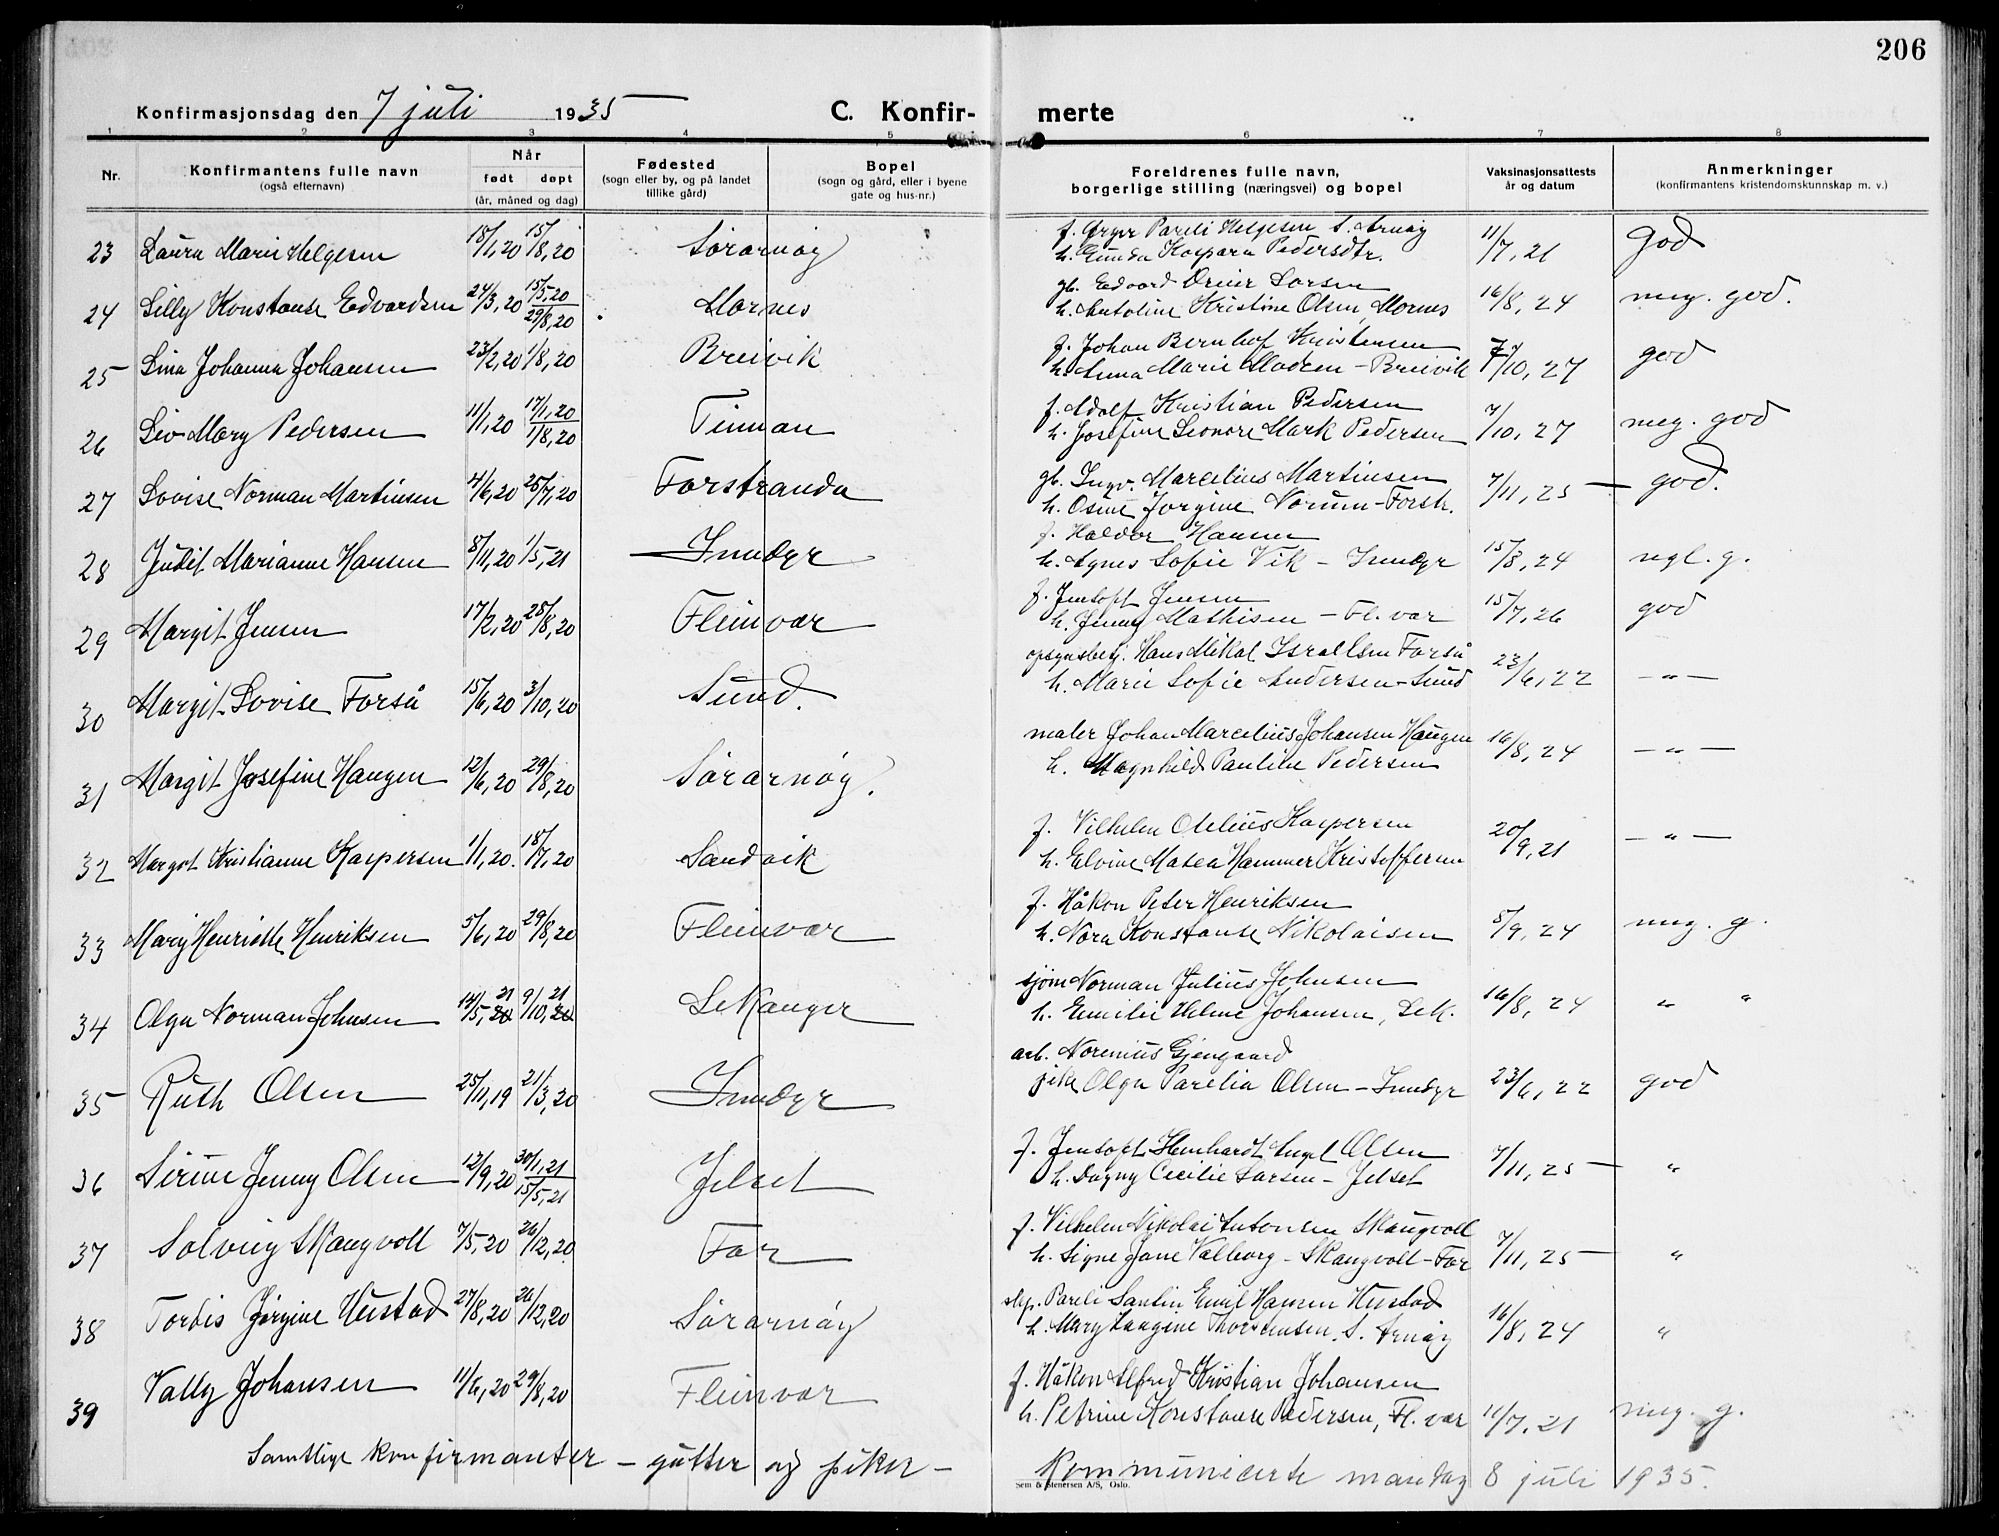 206
Konfirmasjonsdag den 7 juli 1935 C. Konfirmerte
1 2 3 4 5 6 7 8
Nr. Konfirmantens fulle navn (også efternavn) Når født døpt (år, måned og dag) Fødested (sogn eller by, og på landet tillike gård) Bopel (sogn og gård, eller i byene gate og hus-nr.) Foreldrenes fulle navn, borgerlige stilling (næringsvei) og bopel Vaksinasjonsattests år og datum Anmerkninger (konfirmantens kristendomskunnskap m. v.)
23 Laura Marie Helgesen 15/1,20 15/8,20 Sørarnøy f. Pareli Helgesen S. Arnøy 11/7,21 god
h. Gunda Kaspara Pedersdtr.
24 Lilly Konstanse Edvardsen 24/3,20 15/5,20 29/8,20 Mornes gb. Edvard Larsen 16/8,24 meg. god.
h. Antoline Kristine Olsen, Mornes
25 Lina Johanna Johansen 23/2,20 1/8,20 Breivik f. Johan Bernhof Kristensen 7/10,27 god
h. Anna Marie Madsen - Breivik
26 Liv Mary Pedersen 11/1,20 17/1,20 1/8,20 Finman f. Adolf Kristian Pedersen 7/10,27 meg. god
h. Josefine Leonore Mark Pedersen
27 Lovise Norman Martinsen 4/6,20 25/7,20 Forstranda gb. Ingv. Marcelius Martinsen 7/11,25 god.
h. Osine Jørgine Norum-Forstr.
28 Judit Marianne Hansen 8/11,20 1/5,21 Inndyr f. Haldor Hansen 15/8,24 ngl. g.
h. Agnes Sofie Vik - Inndyr
29 Margit Jensen 17/2,20 28/8,20 Fleinvær f. Jentoft Jensen 15/7,26 god
h. Jenny Mathisen - Fl. vær
30 Margit Lovise Forså 15/6,20 3/10,20 Sund. opsynsbetj. Hans Mikal Israelsen Forså 23/6,22 -"-
h. Marie Sofie Andersen-Sund
31 Margit Josefine Haugen 12/6,20 29/8,20 Sørarnøy. maler Johan Marcelius Johansen Haugen 16/8,24 -"-
h. Magnhild Pauline Pedersen
32 Margot Kristianne Kaspersen 1/1,20. 18/7,20 Sandvik f. Vilhelm Otelius Kaspersen 20/9,21 -"-
h. Elvine Masea Hammer Kristoffersen
33 Mary Henriette Henriksen 5/6,20 29/8,20 Fleinvær f. Håkon Peter Henriksen 5/9,24 meg. g.
h. Nora Konstanse Nikolaisen
34 Olga Norman Johnsen 14/5,21 9/10,21 Sekanger sjøm Norman Julius Johnsen 16/8,24 " "
h. Emilie Helene Johansen, Sek.
35 Ruth Olsen 25/11,19 21/3,20 Inndyr arb. Norenius Gjengaard 23/6,22 god
pike Olga Parelia Olsen - Inndyr
36 Sirine Jenny Olsen 12/9,20 30/1,21 15/5,21 Jelset f. Jentoft Angel Olsen 7/11,25 "
h. Dagny Cecilie Larsen - Jelset
37 Solveig Skaugvoll 7/5,20 26/12,20 Før f. Vilhelm Nikolai Antonsen Skaugvoll 7/11,25 "
h. Signe Jane Valborg - Skaugvoll-Før
38 Tordis Jørgine Hustad 27/8,20 26/12,20 Sørarnøy Pareli Santin Emil Hansen Hustad 16/8,24 "
h. Mary Laugine Thorstensen. S. Arnøy
39 Vally Johansen 11/6,20 29/8,20 Fleinvær f. Håkon Alfred Kristian Johansen 11/7,21 meg. g.
h. Petrine Konstanse Pedersen, Fl. vær
Samtlige konfirmanter - gutter og piker - kommuniserte mandag 8 juli 1935.
Sem & Stenersen A/S, Oslo.